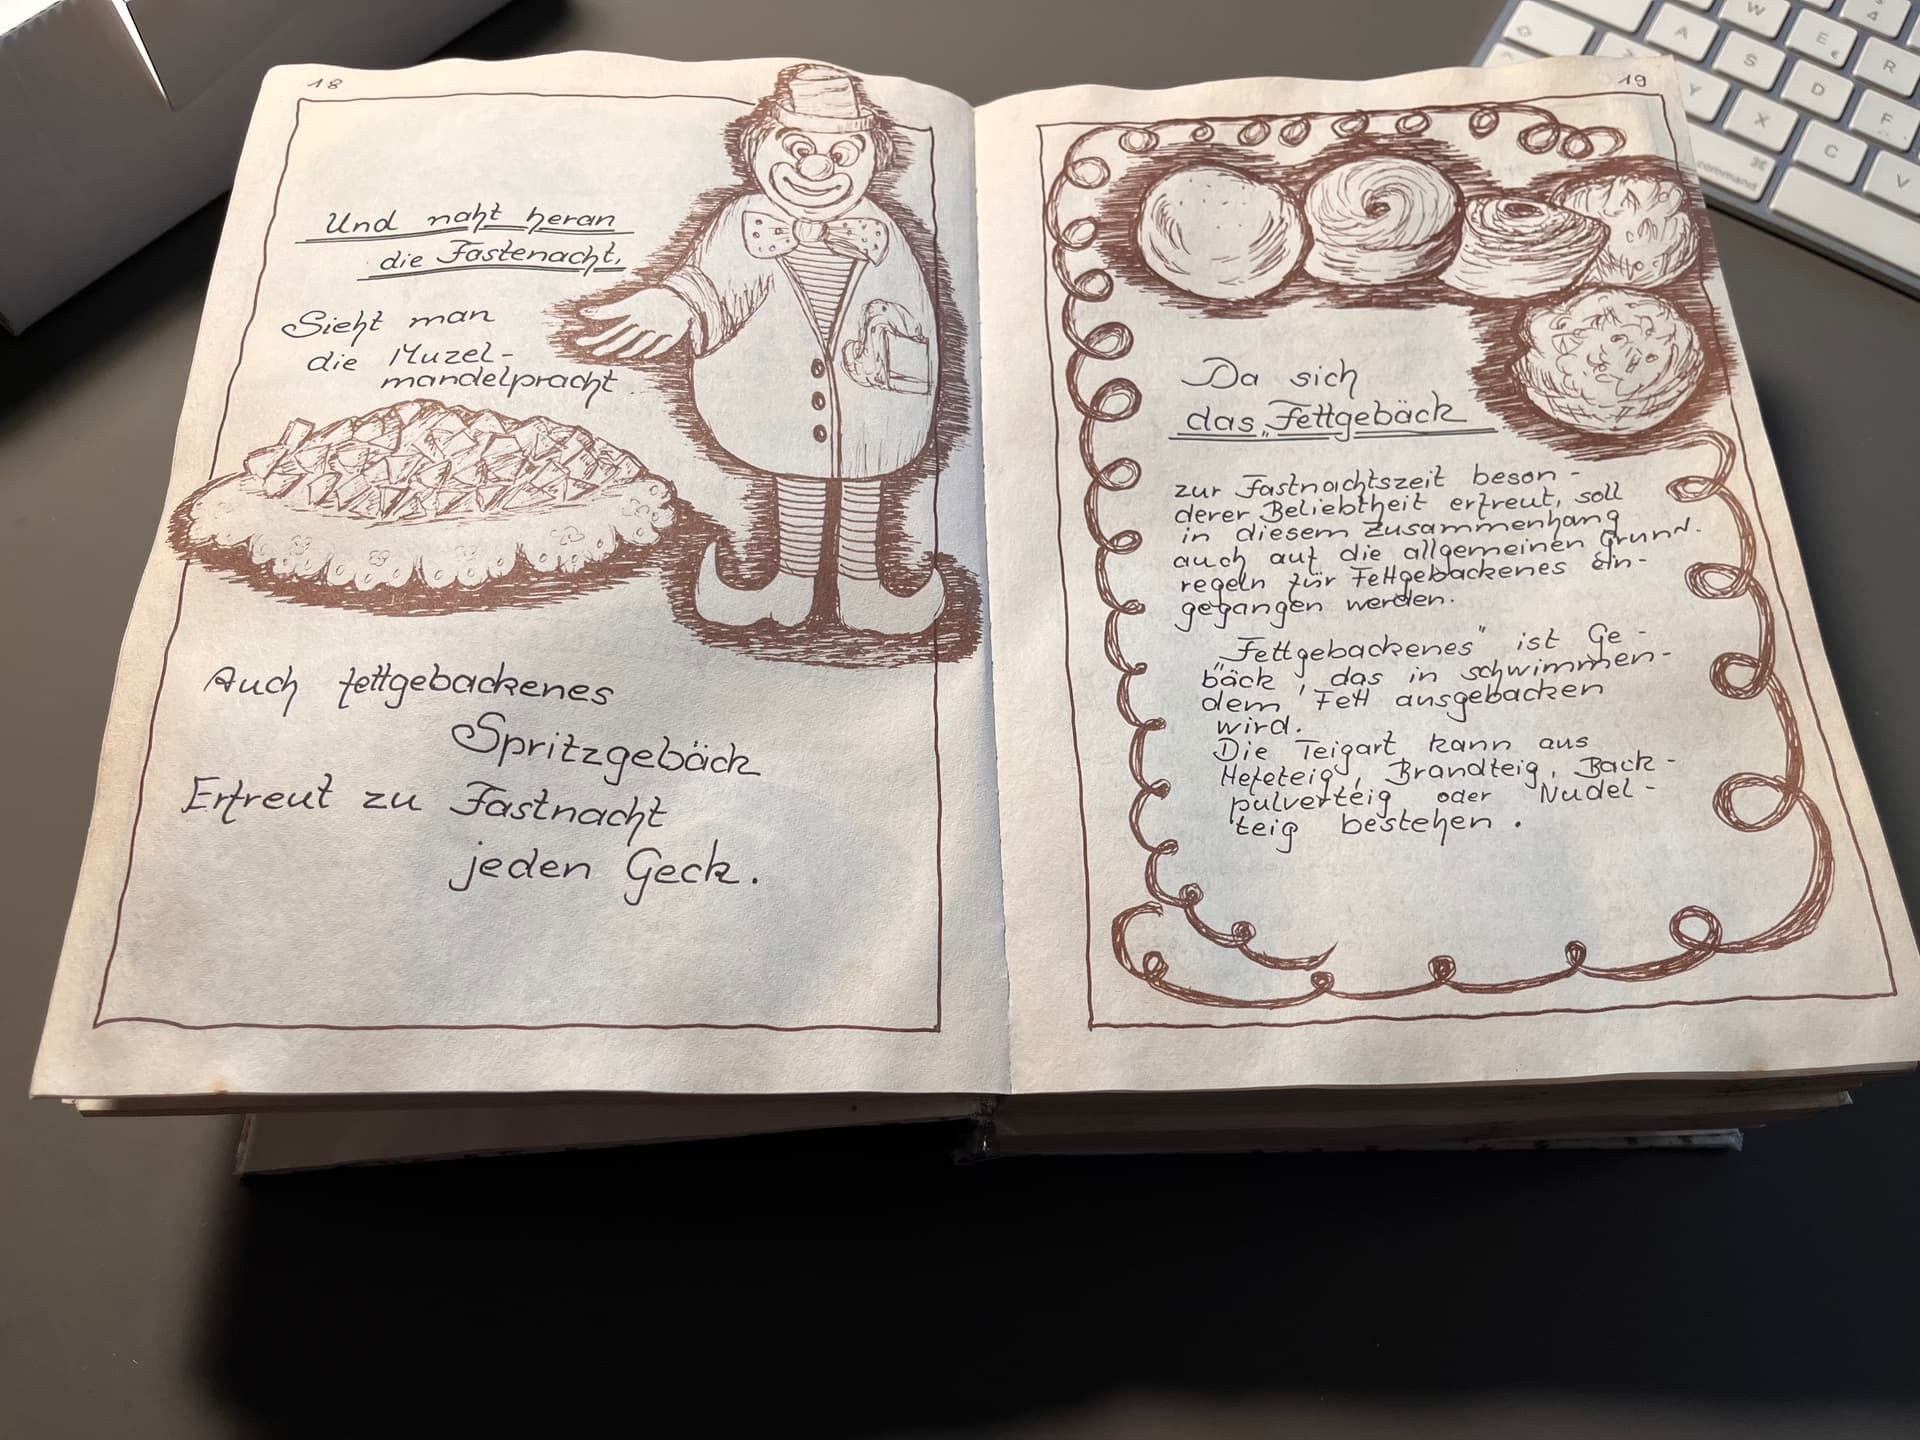 18
Und naht heran
die Fastenacht,
Sieht man
die Muzel-
mandelpracht
Auch fettgebackenes
Spritzgebäck
Erfreut zu Fastnacht
jeden Geck.
19
Da sich
das „Fettgebäck
zur Fastnachtszeit beson-
derer Beliebtheit erfreut, soll
in diesem Zusammenhang
auch auf die allgemeinen Grund-
regeln für Fettgebackenes ein-
gegangen werden.
„Fettgebackenes" ist Ge-
bäck, das in schwimmen-
dem Fett ausgebacken
wird.
Die Teigart kann aus
Hefeteig, Brandteig, Back-
pulverteig oder Nudel-
teig bestehen.
W
E
€
R
4
A
S
D
F
Y
X
C
V
⌘
command